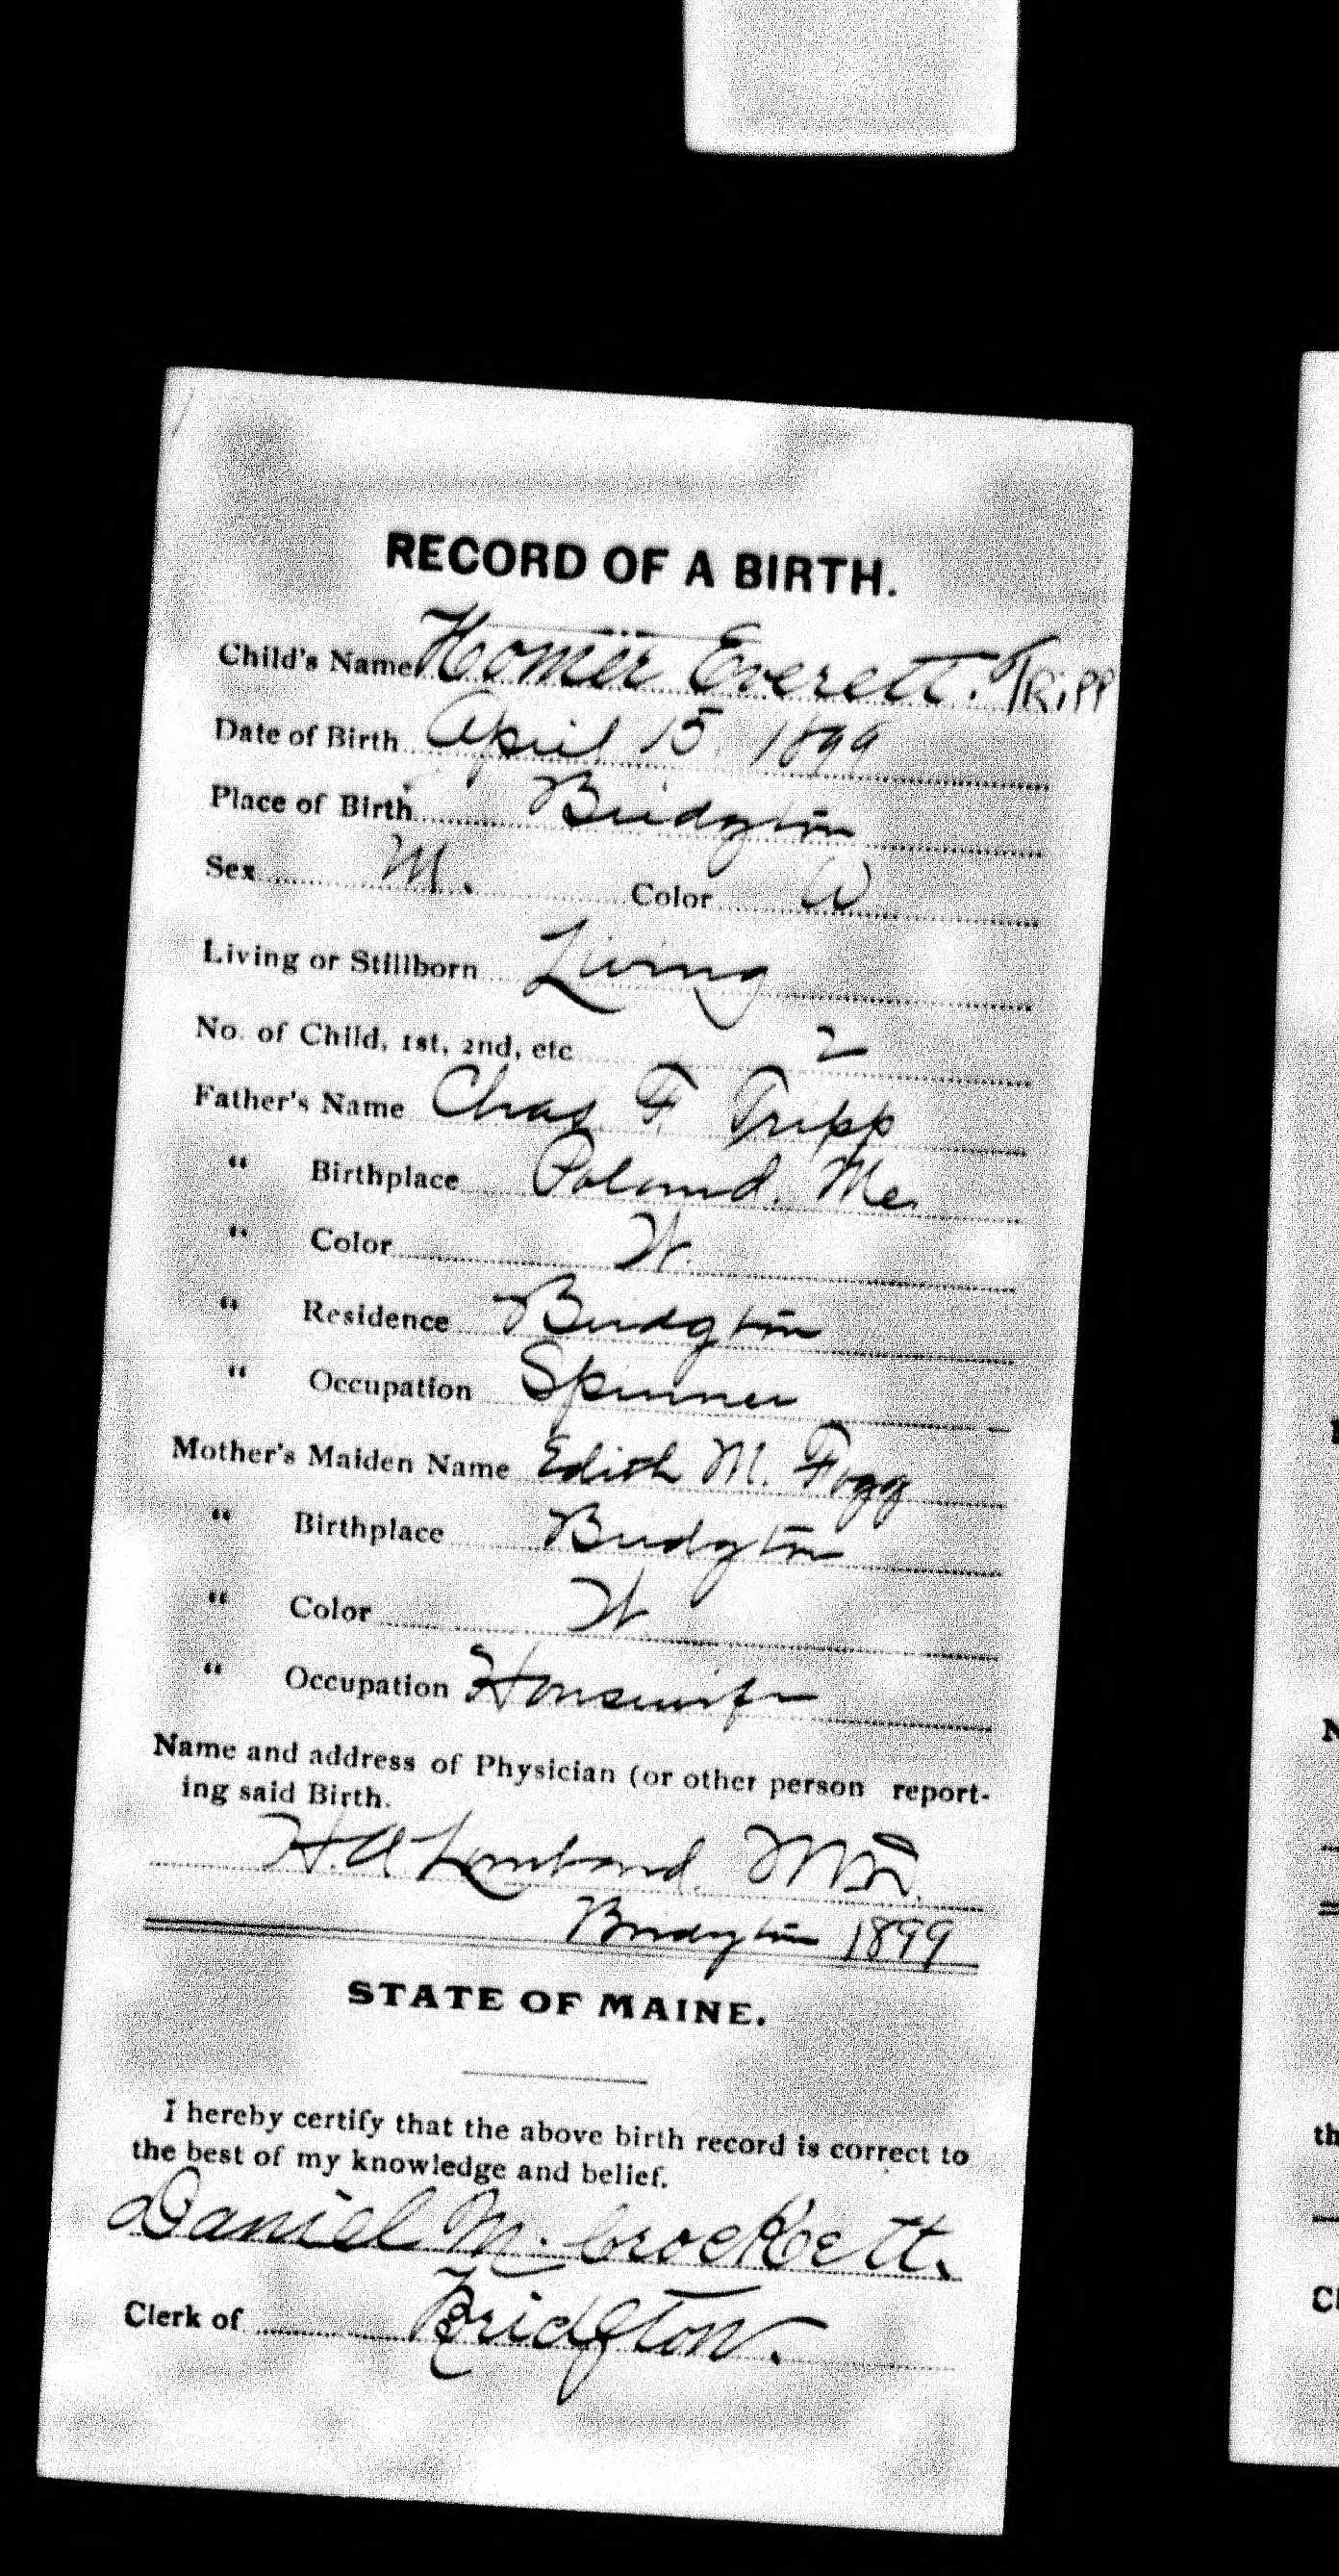 RECORD OF A BIRTH.
Child's Name Homer Everett. Tripp
Date of Birth April 15, 1899
Place of Birth Bridgton
Sex M. Color W
Living or Stillborn Living
No. of Child, 1st, 2nd, etc 2
Father's Name Chas F Tripp
" Birthplace Poland. Me.
" Color W.
" Residence Bridgton
" Occupation Spinner
Mother's Maiden Name Edith M. Fogg
" Birthplace Bridgton
" Color W
" Occupation Housewife
Name and address of Physician (or other person report-
ing said Birth.
H. A Lombard. M.D.
Bridgton 1899
STATE OF MAINE.
I hereby certify that the above birth record is correct to
the best of my knowledge and belief.
Daniel M. Crockett.
Clerk of Bridgton.